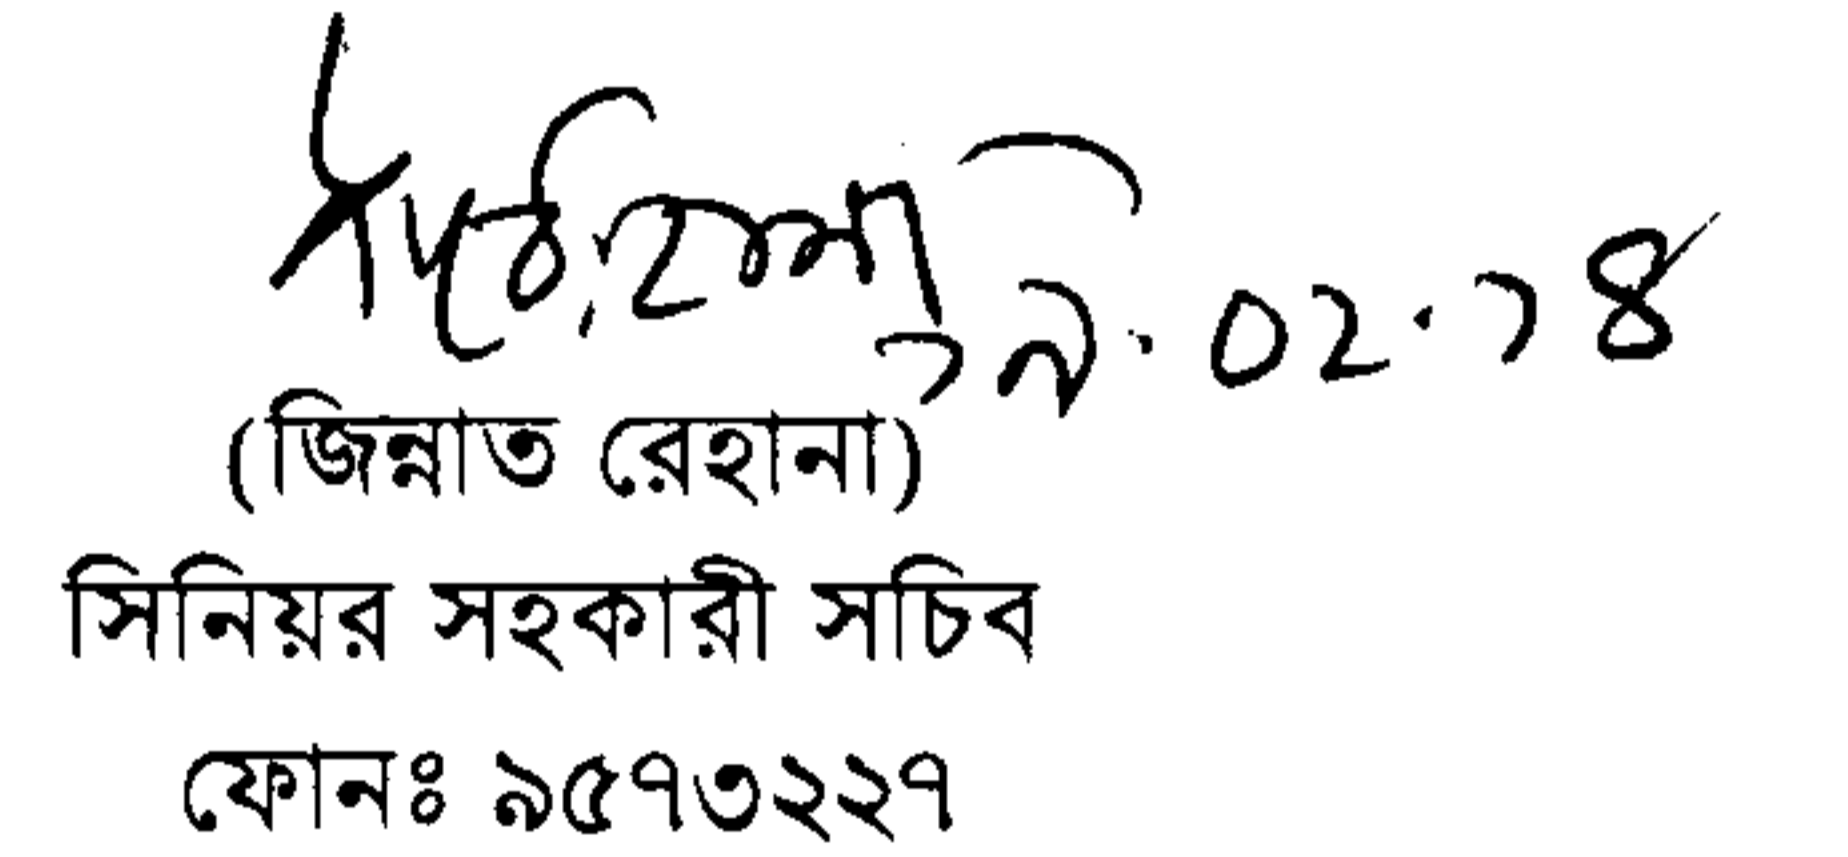 (জিন্নাত রেহানা)
সিনিয়র সহকারী সচিব
ফোনঃ ৯৫৭৩২২৭